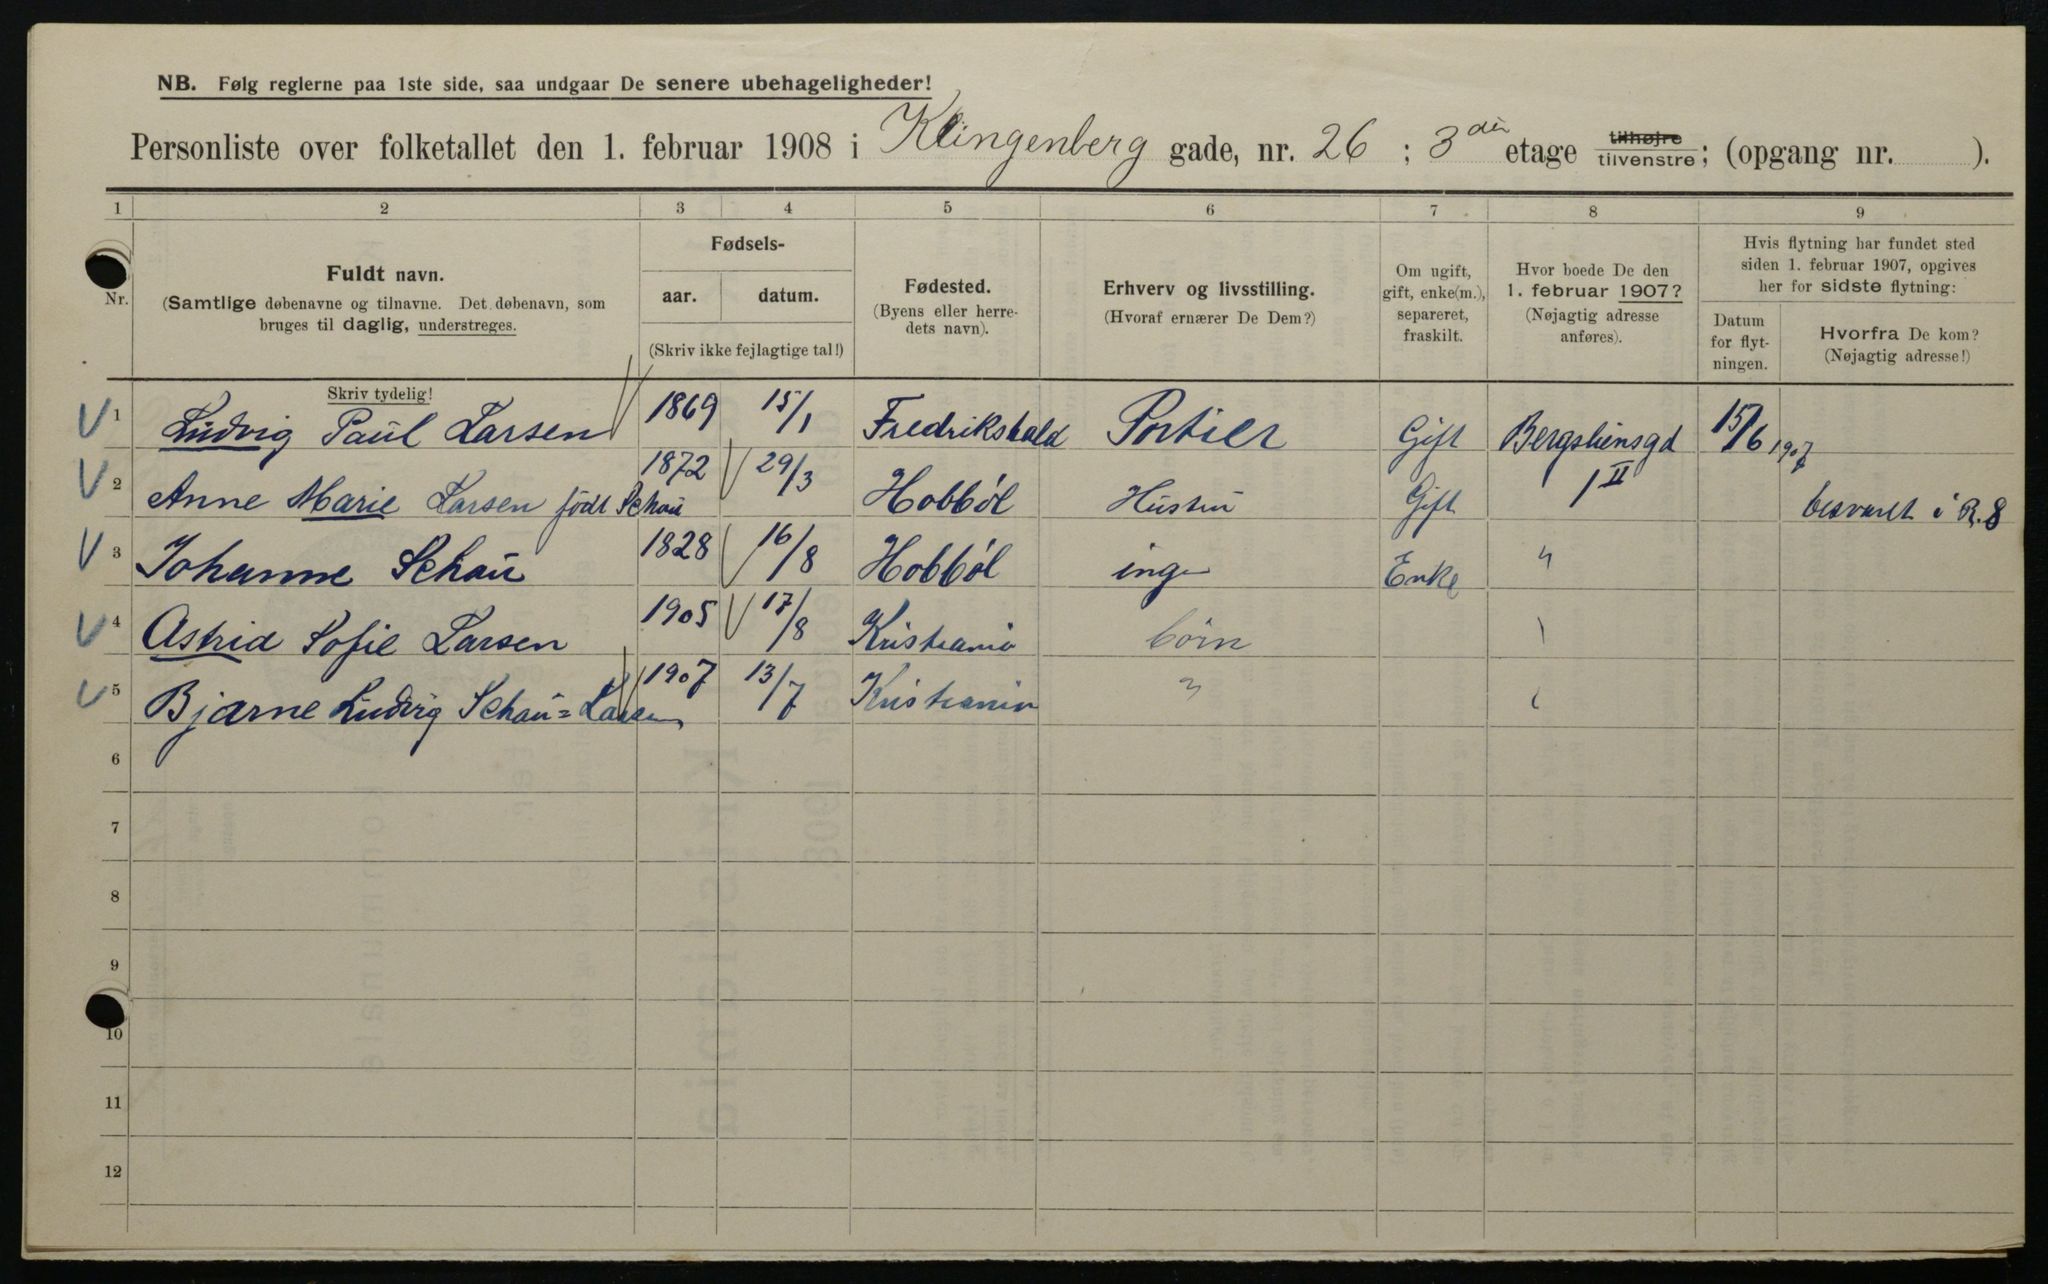 NB. Følg reglerne paa 1ste side, saa undgaar De senere ubehageligheder!
Personliste over folketallet den 1. februar 1908 i Klingenberg gade, nr. 26 ; 3die etage tilhøjre tilvenstre; (opgang nr. ).
1 2 3 4 5 6 7 8 9
Nr.
Fuldt navn.
(Samtlige døbenavne og tilnavne. Det døbenavn, som
bruges til daglig, understreges.
Skriv tydelig!
Fødsels-
aar. datum.
(Skriv ikke fejlagtige tal!)
Fødested.
(Byens eller herre-
dets navn).
Erhverv og livsstilling.
(Hvoraf ernærer De Dem?)
Om ugift,
gift, enke(m.),
separeret,
fraskilt.
Hvor boede De den
1. februar 1907?
(Nøjagtig adresse
anføres).
Hvis flytning har fundet sted
siden 1. februar 1907, opgives
her for sidste flytning:
Datum
for flyt-
ningen.
Hvorfra De kom?
(Nøjagtig adresse!)
V 1 Ludvig Paul Larsen 1869 15/1 Fredrikshald Portier Gift Bergsliensgd 15/6 1907
V 2 Anne Marie Larsen født Schau 1872 29/3 Hobböl Hustru Gift 1 II besvaret i R. 8
V 3 Johanne Schau 1828 16/8 Hobböl ingen Enke "
V 4 Astrid Sofie Larsen 1905 17/8 Kristiania börn
V 5 Bjarne Ludvig Schau=Larsen 1907 13/7 Kristiania "
6
7
8
9
10
11
12